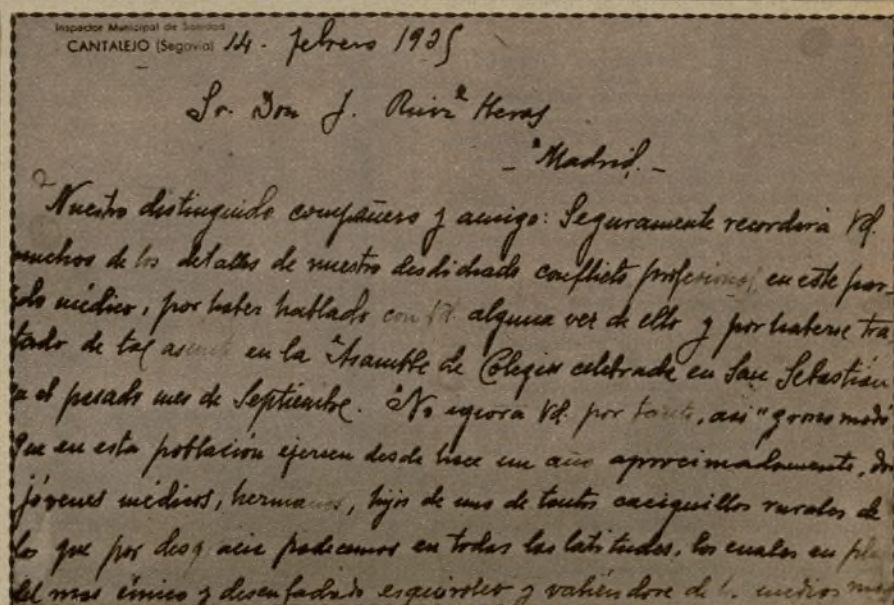 Inspector Municipal de Sanidad
CANTALEJO (Segovia) 14 - febrero 1935
Sr. Don J. Ruiz Heras
- Madrid. -
Nuestro distinguido compañero y amigo: Seguramente recordará Vd.
muchos de los detalles de nuestro desdichado conflicto profesional, en este par-
tido médico, por haber hablado con Vd. alguna vez de ello y por haberse tra
tado de tal asunto en la Asamblea de Colegios celebrada en San Sebastián
en el pasado mes de Septiembre. No ignora Vd. por tanto, asi "grosso modo
que en esta población ejercen desde hace un año aproximadamente, dos
jóvenes médicos, hermanos, hijos de uno de tantos caciquillos rurales de
los que por desgracia padecemos en todas las latitudes, los cuales en
del mas cínico y desenfadado esquiroleo y valiéndose de los medios